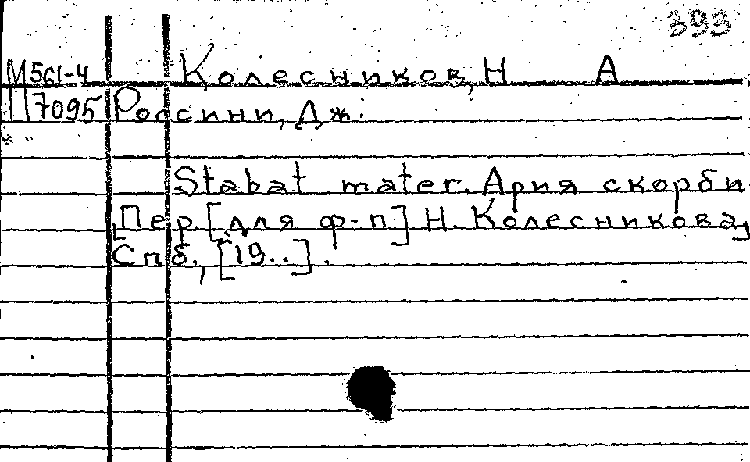 393
М561-4 Колесников, Н А
П7095 Россини, Дж.
Stabat mater. Ария скорби
[Пер. [для ф-п] Н. Колесникова]
Спб., [19..].